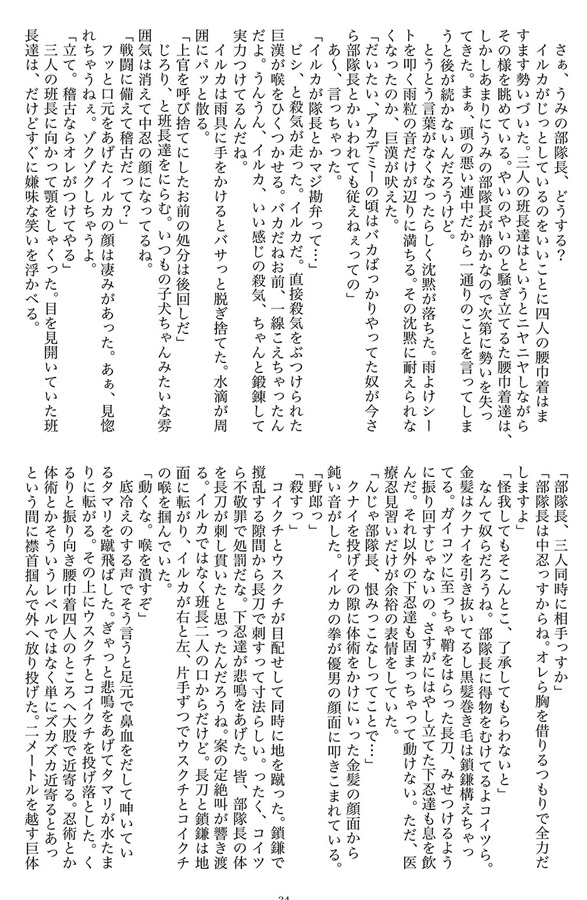 さぁ、うみの部隊長、どうする？
イルカがじっとしているのをいいことに四人の腰巾着はま
すます勢いづいた。三人の班長達はというとニヤニヤしながら
その様を眺めている。やいのやいのと騒ぎ立てるた腰巾着達は、
しかしあまりにうみの部隊長が静かなので次第に勢いを失っ
てきた。まぁ、頭の悪い連中だから一通りのことを言ってしま
うと後が続かないんだろうけど。
とうとう言葉がなくなったらしく沈黙が落ちた。雨よけシー
トを叩く雨粒の音だけが辺りに満ちる。その沈黙に耐えられな
くなったのか、巨漢が吠えた。
「だいたい、アカデミーの頃はバカばっかりやってた奴が今さ
ら部隊長とかいわれても従えねぇっての」
あ～、言っちゃった。
「イルカが隊長とかマジ勘弁って…」
ビシ、と殺気が走った。イルカだ。直接殺気をぶつけられた
巨漢が喉をひくつかせる。バカだねお前、一線こえちゃったん
だよ。うんうん、イルカ、いい感じの殺気、ちゃんと鍛錬して
実力つけてるんだね。
イルカは雨具に手をかけるとバサっと脱ぎ捨てた。水滴が周
囲にパッと散る。
「上官を呼び捨てにしたお前の処分は後回しだ」
じろり、と班長達をにらむ。いつもの子犬ちゃんみたいな雰
囲気は消えて中忍の顔になってるね。
「戦闘に備えて稽古だって？」
フッと口元をあげたイルカの顔は凄みがあった。あぁ、見惚
れちゃうねぇ。ゾクゾクしちゃうよ。
「立て。稽古ならオレがつけてやる」
三人の班長に向かって顎をしゃくった。目を見開いていた班
長達は、だけどすぐに嫌味な笑いを浮かべる。
「部隊長、三人同時に相手っすか」
「部隊長は中忍っすからね。オレら胸を借りるつもりで全力だ
しますよ」
「怪我してもそこんとこ、了承してもらわないと」
なんて奴らだろうね。部隊長に得物をむけてるよコイツら。
金髪はクナイを引き抜いてるし黒髪巻き毛は鎖鎌構えちゃっ
てる。ガイコツに至っちゃ鞘をはらった長刀、みせつけるよう
に振り回すじゃないの。さすがにはやし立てた下忍達も息を飲
んだ。それ以外の下忍達も固まっちゃって動けない。ただ、医
療忍見習いだけが余裕の表情をしていた。
「んじゃ部隊長、恨みっこなしってことで…」
クナイを投げその隙に体術をかけにいった金髪の顔面から
鈍い音がした。イルカの拳が優男の顔面に叩きこまれている。
「野郎っ」
「殺すっ」
コイクチとウスクチが目配せして同時に地を蹴った。鎖鎌で
撹乱する隙間から長刀で刺すって寸法らしい。ったく、コイツ
ら不敬罪で処罰だな。下忍達が悲鳴をあげた。皆、部隊長の体
を長刀が刺し貫いたと思ったんだろうね。案の定絶叫が響き渡
る。イルカではなく班長二人の口からだけど。長刀と鎖鎌は地
面に転がり、イルカが右と左、片手ずつでウスクチとコイクチ
の喉を掴んでいた。
「動くな。喉を潰すぞ」
底冷えのする声でそう言うと足元で鼻血をだして呻いてい
るタマリを蹴飛ばした。ぎゃっと悲鳴をあげてタマリが水たま
りに転がる。その上にウスクチとコイクチを投げ落とした。く
るりと振り向き腰巾着四人のところへ大股で近寄る。忍術とか
体術とかそういうレベルではなく単にズカズカ近寄るとあっ
という間に襟首掴んで外へ放り投げた。二メートルを越す巨体